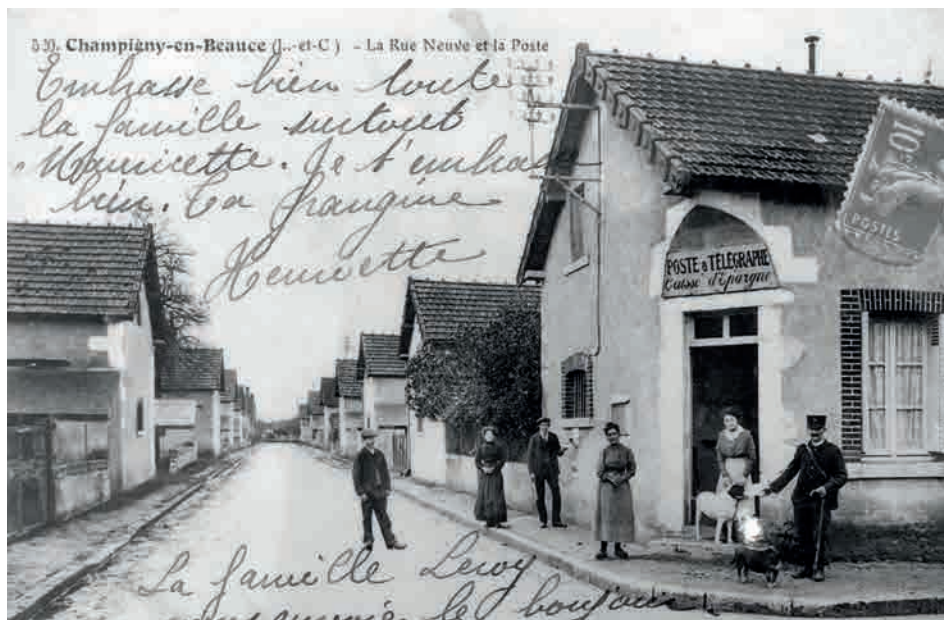 530. Champigny-en-Beauce (L.-et-C) - La Rue Neuve et la Poste
Embrasse bien toute
la famille surtout
Mauricette. Je t'embrasse
bien. Ta frangine
Henriette
10c
POSTES
POSTE & TÉLÉGRAPHE
Caisse d'Epargne
La famille Leroy
vous envoie le bonjour